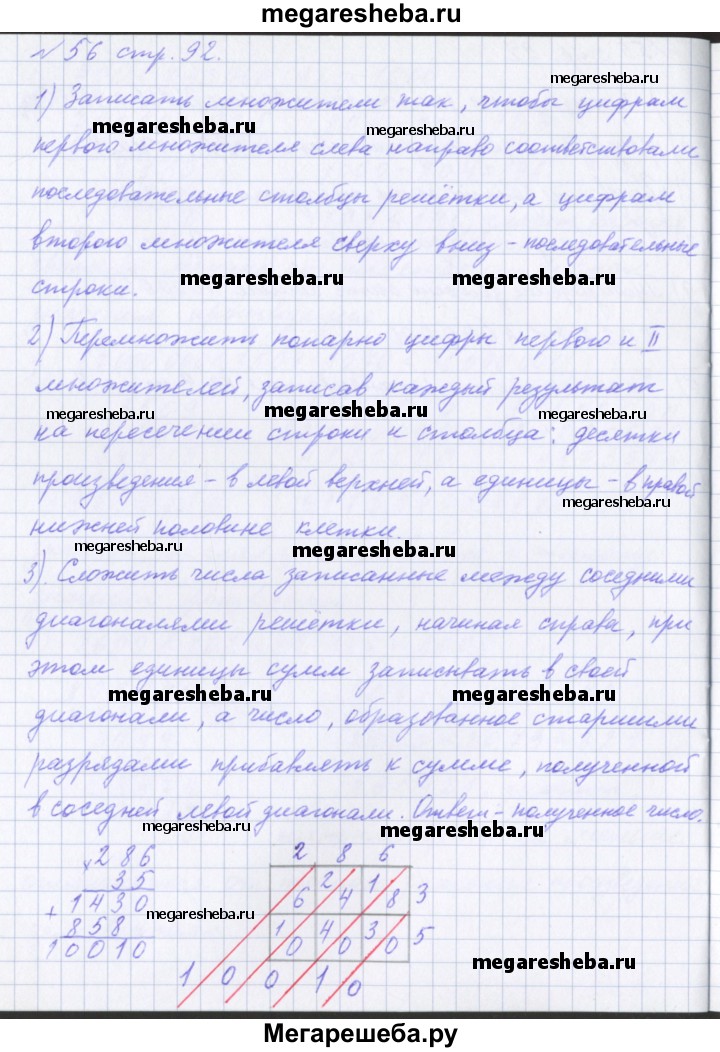 megaresheba.ru
№ 56 стр. 92.
megaresheba.ru
1) Записать множители так, чтобы цифрам
megaresheba.ru megaresheba.ru
первого множителя слева направо соответствовали
последовательные столбцы решётки, а цифрам
второго множителя сверху вниз - последовательные
megaresheba.ru megaresheba.ru
строки.
2) Перемножить попарно цифры первого и II
множителей, записав каждый результат
megaresheba.ru megaresheba.ru megaresheba.ru
на пересечении строки и столбца: десятки
произведения - в левой верхней, а единицы - в правой
megaresheba.ru
нижней половине клетки.
megaresheba.ru megaresheba.ru
3) Сложить числа записанные между соседними
диагоналями решётки, начиная справа, при
этом единицы сумм записывать в своей
megaresheba.ru megaresheba.ru
диагонали, а число, образованное старшими
разрядами прибавлять к сумме, полученной
в соседней левой диагонали. Ответ - полученное число.
megaresheba.ru megaresheba.ru
× 286
35
+ 1430
858
10010
2 8 6
2 1
6 4 8 3
megaresheba.ru
1 4 3
0 0 0 5
1 0 0 1 0
megaresheba.ru
Мегарешеба.ру